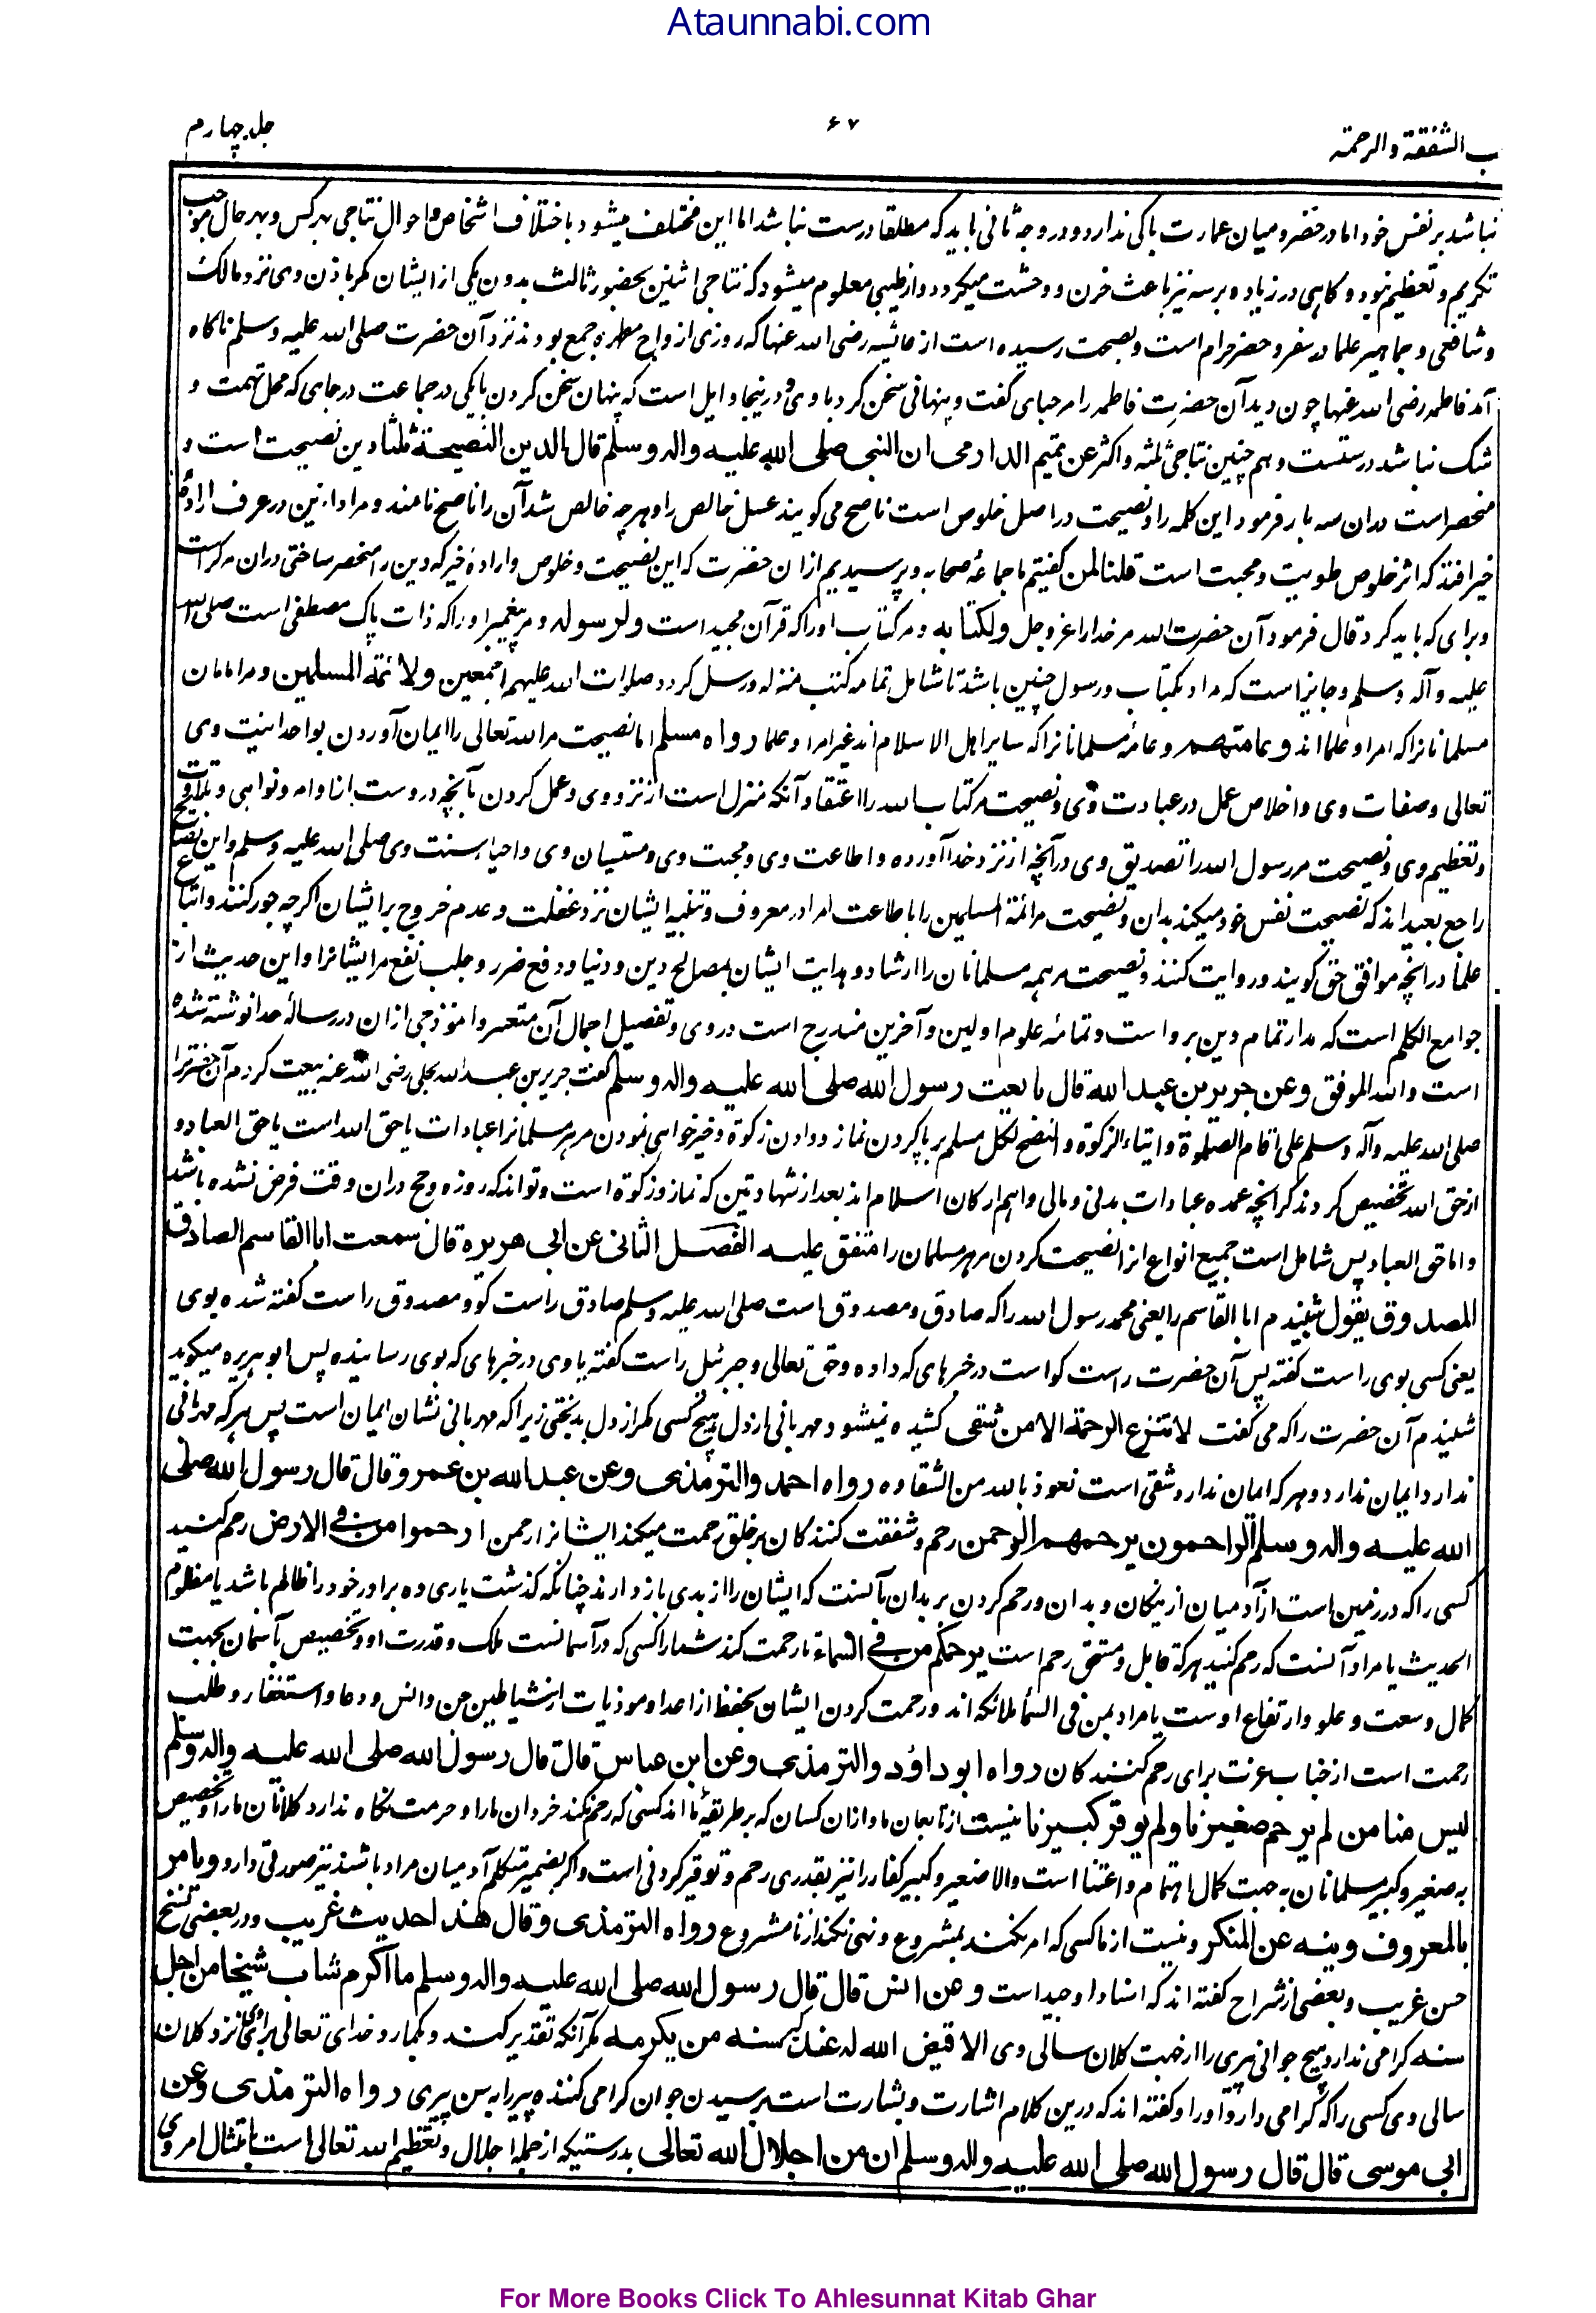 Ataunnabi.com
ب الشفقة والرحمة
۶۷
جلد چهارم
نباشد بر نفس خود اما در حضر و میان عمارت باکی ندارد و در وجه ثانی باید که مطلقا درست نباشد اما این مختلف میشود باختلاف اشخاص و احوال نتاجی بهر کس و بهر حال موجب
تکریم و تعظیم نبود و کاهی در زیاد و بر سه نیز باعث حزن و وحشت میکردد و از طیبی معلوم میشود که نتاجی اثنین بحضور ثالث بدون یکی از ایشان مکر باذن وی نزد مالک
و شافعی و جماهیر علما در سفر و حضر حرام است و بصحت رسیده است از عائشه رضی الله عنها که روزی ازواج مطهره جمع بودند نزد آن حضرت صلی الله علیه وسلم ناکاه
آمد فاطمه رضی الله عنها چون دید آن حضرت فاطمه را مرحبای کفت و پنهانی سخن کرد با وی و درینجا دلیل است که پنهان سخن کردن با یکی در جماعت در جای که محل تهمت و
شک نباشد درستست و هم چنین نتاجی ثلثه و اکثر عن تمیم الداری ان النبی صلی الله علیه واله وسلم قال الدین النصیحة ثلثا دین نصیحت است و
منحصر است دران سه بار فرمود این کلمه را و نصیحت در اصل خلوص است ناصح می کویند عسل خالص را و هر چه خالص شد آن را ناصح نامند و مراد ازین در عرف ارادهٔ
خیر افتد که اثر خلوص طویت و محبت است قلنا لمن کفتیم ما جماعهٔ صحابه و پرسیدیم ازان حضرت که این نصیحت و خلوص و ارادهٔ خیر که دین را منحصر ساختی دران مر کراست
و برای که باید کرد قال فرمود آن حضرت لله مر خدا را عز و جل ولکتابه و مر کتاب او را که قرآن مجید است ولرسوله و مر پیغمبر او را که ذات پاک مصطفی است صلی الله
علیه وآله وسلم و جایز است که مراد بکتاب و رسول جنس باشد تا شامل تمامه کتب منزله و رسل کردد صلوات الله علیهم اجمعین ولائمة المسلمین و مر امامان
مسلمانانرا که امرا و علما اند وعامتهم و عامهٔ مسلمانانرا که سایر اهل الاسلام اند غیر امرا و علما رواه مسلم اما نصیحت مر الله تعالی را ایمان آوردن بواحدانیت وی
تعالی و صفات وی و اخلاص عمل در عبادت وی و نصیحت مر کتاب الله را اعتقاد آنکه منزل است از نزد وی و عمل کردن بآنچه در وست از اوامر و نواهی و تلاوت
و تعظیم وی و نصیحت مر رسول الله را تصدیق وی در آنچه از نزد خدا آورده و اطاعت وی و محبت وی و متسبان وی و احیاء سنت وی صلی الله علیه وسلم و این نصایح
راجع بعبد اند که نصیحت نفس خود میکند بدان و نصیحت مر ائمة المسلمین را باطاعت امرا در معروف و تنبیه ایشان نزد غفلت و عدم خروج بر ایشان اکرچه جور کنند و اتباع
علما در انچه موافق حق کویند و روایت کنند و نصیحت مر همه مسلمانان را ارشاد و هدایت ایشان بمصالح دین و دنیا و دفع ضرر و جلب نفع مر ایشانرا و این حدیث از
جوامع الکلم است که مدار تمام دین برو است و تمامه علوم اولین و آخرین مندرج است در وی و تفصیل اجمال آن متعسر و انموذجی ازان در رسالهٔ جدا نوشته شده
است والله الموفق وعن جریر بن عبد الله قال بایعت رسول الله صلی الله علیه واله وسلم کفت جریر بن عبد الله بجلی رضی الله عنه بیعت کردم آن حضرترا
صلی الله علیه وآله وسلم علی اقام الصلوة وایتاء الزکوة والنصح لکل مسلم بر پا کردن نماز و دادن زکوة و خیر خواهی نمودن مر هر مسلمانرا عبادات یا حق الله است یا حق العباد و
از حق الله تخصیص کرد بذکر انچه عمده عبادات بدنی و مالی و اهم ارکان اسلام اند بعد از شهادتین که نماز و زکوة است و تواند که روزه و حج دران وقت فرض نشده باشد
و اما حق العباد پس شامل است جمیع انواع انرا نصیحت کردن مر هر مسلمان را متفق علیه الفصل الثانی عن ابی هریرة قال سمعت ابا القاسم الصادق
المصدوق یقول شنیدم ابا القاسم را یعنی محمد رسول الله را که صادق و مصدوق است صلی الله علیه وسلم صادق راست کو و مصدوق راست کفته شده بوی
یعنی کسی بوی راست کفته پس آن حضرت راست کو است در خبرهای که داده و حق تعالی و جبرئیل راست کفته با وی در خبرهای که بوی رسانیده پس ابو هریره میکوید
شنیدم آن حضرت را که می کفت لا تنزع الرحمة الا من شقی کشیده نمیشود مهربانی از دل هیچ کسی مکر از دل بدبختی زیرا که مهربانی نشان ایمان است پس هر که مهربانی
ندارد ایمان ندارد و هر که ایمان ندارد شقی است نعوذ بالله من الشقاوه رواه احمد والترمذی وعن عبد الله بن عمرو قال قال رسول الله صلی
الله علیه واله وسلم الراحمون یرحمهم الرحمن رحم و شفقت کنندکان بر خلق رحمت میکند ایشانرا رحمن ارحموا من فی الارض رحم کنید
کسی را که در زمین است از آدمیان از نیکان و بدان و رحم کردن بر بدان بآنست که ایشان را از بدی باز دارند چنانکه کذشت یاری ده برادر خود را ظالم باشد یا مظلوم
الحدیث یا مراد آنست که رحم کنید هر که قابل و مستحق رحم است یرحمکم من فی السماء تا رحمت کند شما را کسی که در آسمانست ملک و قدرت او و تخصیص بآسمان بجهت
کمال وسعت و علو و ارتفاع اوست یا مراد بمن فی السماء ملائکه اند و رحمت کردن ایشان بحفظ از اعدا و موذیات از شیاطین جن و انس و دعا و استغفار و طلب
رحمت است از جناب عزت برای رحم کنندکان رواه ابو داؤد والترمذی وعن ابن عباس قال قال رسول الله صلی الله علیه واله وسلم
لیس منا من لم یرحم صغیرنا ولم یوقر کبیرنا نیست از تابعان ما و ازان کسان که بر طریقهٔ ما اند کسی که رحم نکند خردان ما را و حرمت نکاه ندارد کلانان ما را و تخصیص
به صغیر و کبیر مسلمانان به جهت کمال اهتمام و اعتنا است والا صغیر و کبیر کفار را نیز بقدری رحم و توقیر کردنی است و اکر بضمیر متکلم آدمیان مراد باشند نیز صورتی دارد ویامر
بالمعروف وینه عن المنکر و نیست از ما کسی که امر نکند بمشروع و نهی نکند از نامشروع رواه الترمذی وقال هذا حدیث غریب و در بعضی نسخ
حسن غریب و بعضی از شراح کفته اند که اسناد او جید است وعن انس قال قال رسول الله صلی الله علیه واله وسلم ما اکرم شاب شیخا من اجل
سنه کرامی ندارد هیچ جوانی پیری را از جهت کلان سالی وی الا قیض الله له عند کبر سنه من یکرمه مکر آنکه تقدیر کند و بکمارد خدای تعالی برای وی نزد کلان
سالی وی کسی را که کرامی دارد او را و کفته اند که درین کلام اشارت و بشارت است برسیدن جوان کرامی کننده پیر را به سن پیری رواه الترمذی وعن
ابی موسی قال قال رسول الله صلی الله علیه واله وسلم ان من اجلال الله تعالی بدرستیکه از جمله اجلال و تعظیم الله تعالی است بامتثال امر وی
For More Books Click To Ahlesunnat Kitab Ghar